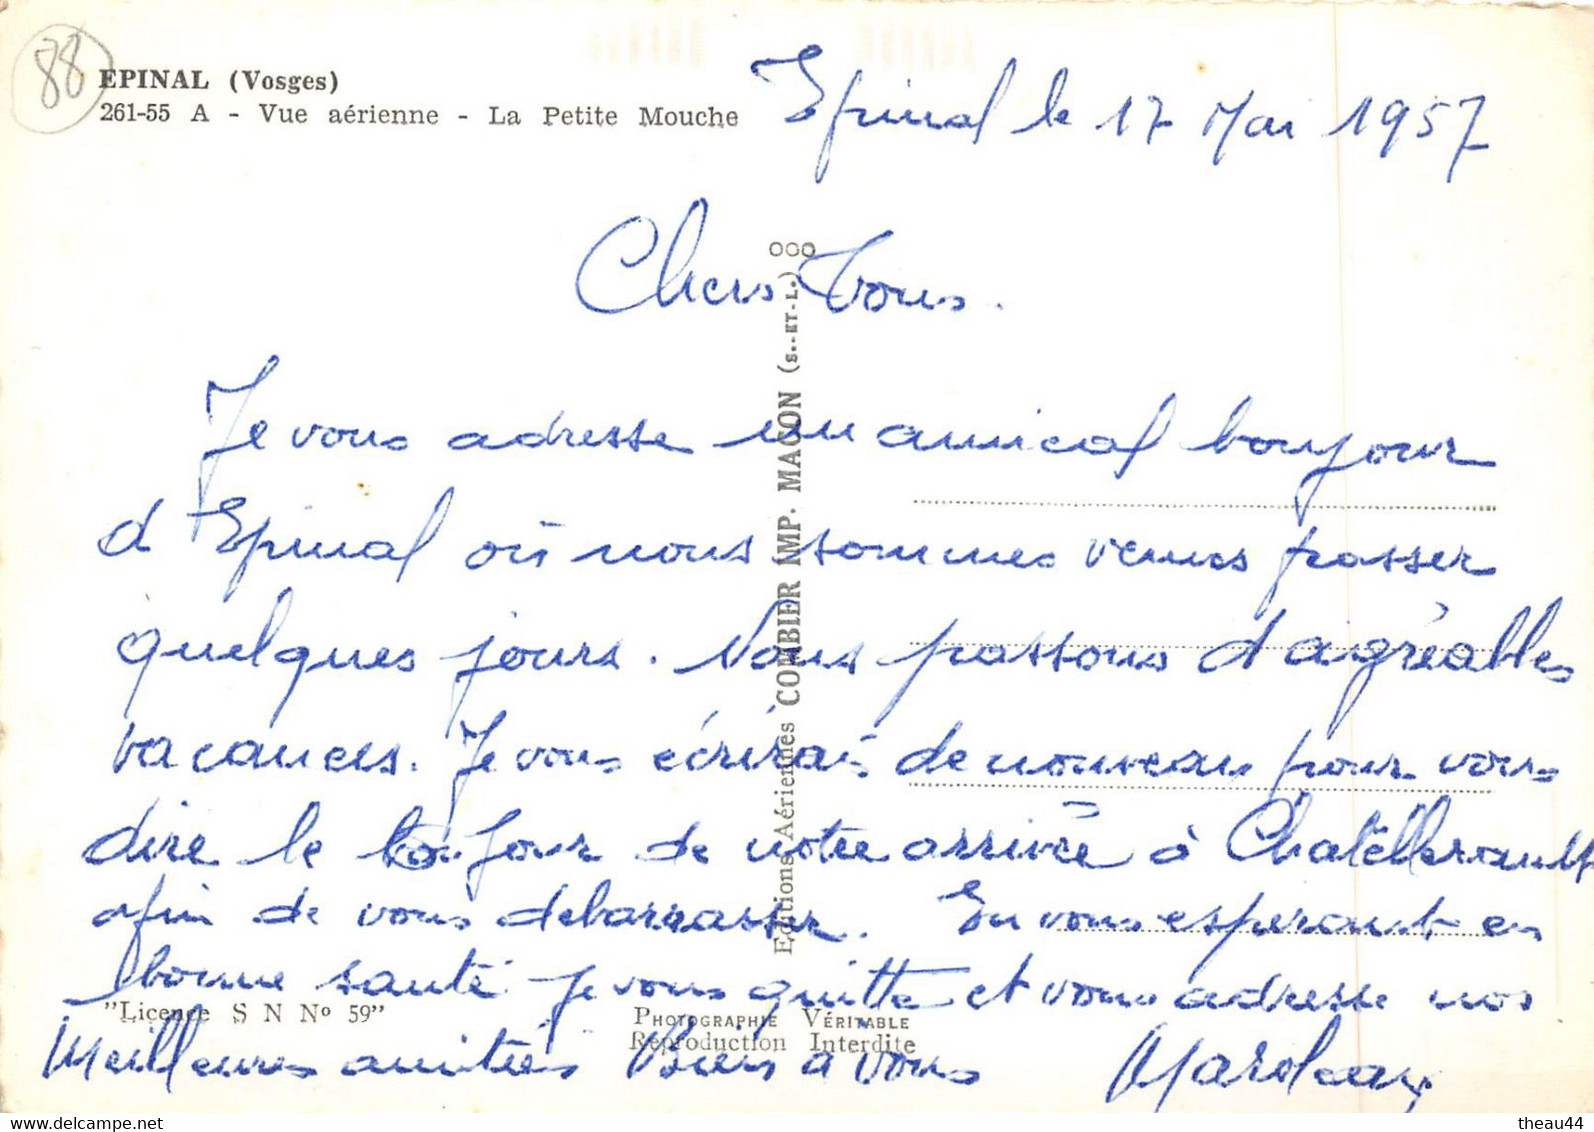 88
EPINAL (Vosges)
261-55 A - Vue aérienne - La Petite Mouche
Epinal le 17 Mai 1957
Chers Vous.
Je vous adresse un amical bonjour
d'Epinal où nous sommes venus passer
quelques jours. Nous passons d'agréables
vacances. Je vous écrirais de nouveau pour vous
dire le jour de notre arrivée à Chatellerault
afin de vous debarrasser. En vous esperant en
bonne santé je vous quitte et vous adresse nos
Meilleures amitiés Biens a vous
Editions Aériennes COMBIER IMP. MACON (S.-ET-L.) OOO
"Licence S N No 59"
PHOTOGRAPHIE VÉRITABLE
Reproduction Interdite
delcampe.net
theau44